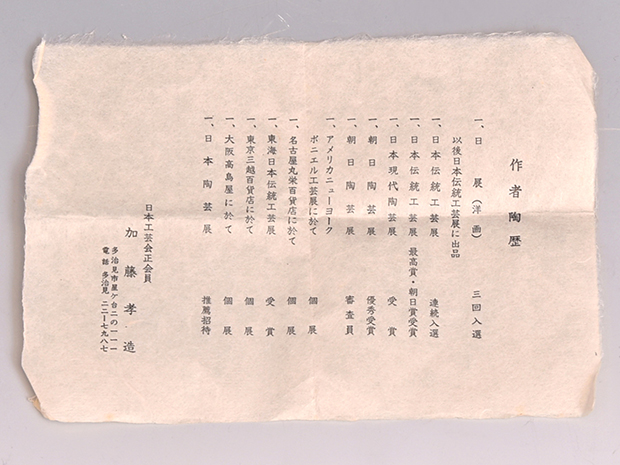 作者陶歴
一、日展（洋画） 三回入選
以後日本伝統工芸展に出品
一、日本伝統工芸展 連続入選
一、日本伝統工芸展 最高賞・朝日賞受賞
一、日本現代陶芸展 受賞
一、朝日陶芸展 優秀受賞
一、朝日陶芸展 審査員
一、アメリカニューヨーク
ボニエル工芸展に於て 個展
一、名古屋丸栄百貨店に於て 個展
一、東海日本伝統工芸展 受賞
一、東京三越百貨店に於て 個展
一、大阪高島屋に於て 個展
一、日本陶芸展 推薦招待
日本工芸会正会員
加藤孝造
多治見市星ケ台二の一一一
電話 多治見 二二―七九八七